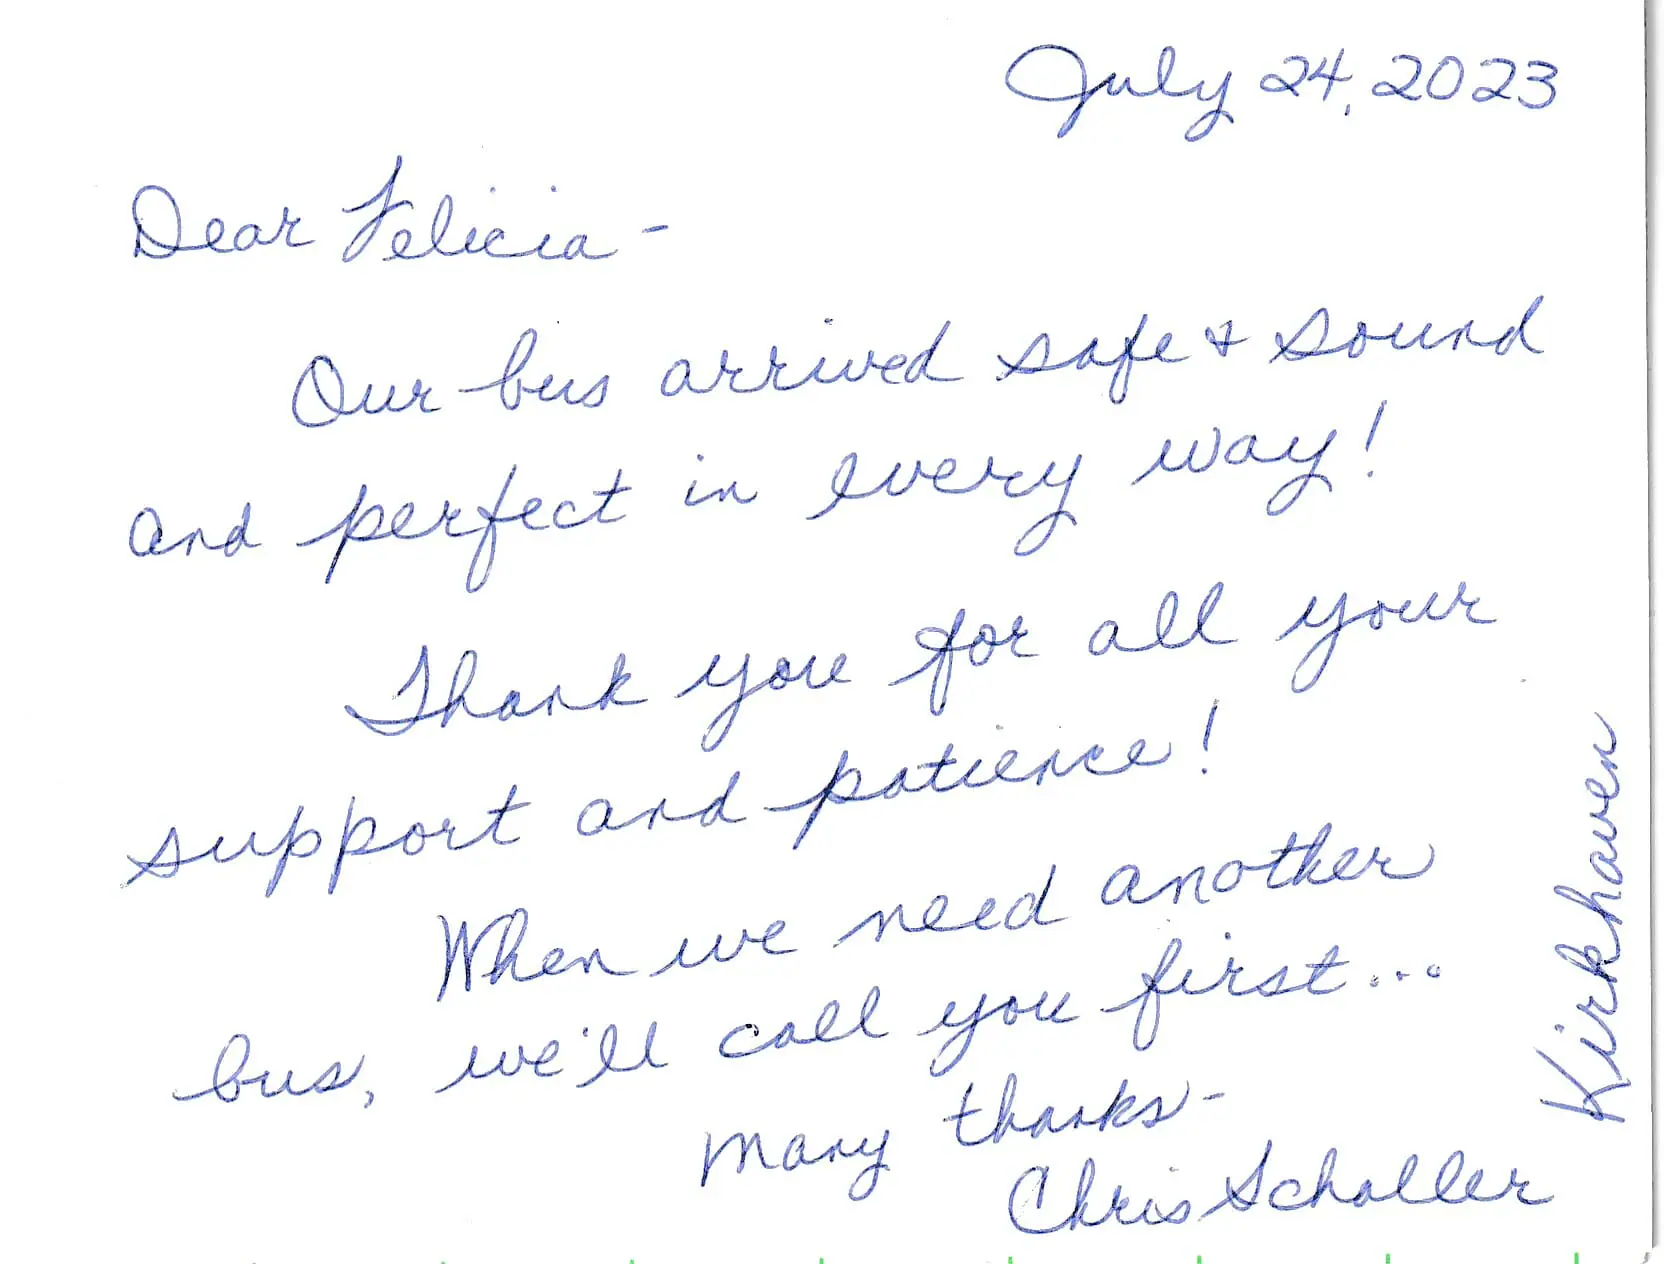 July 24, 2023
Dear Felicia -
Our bus arrived safe & sound
and perfect in every way!
Thank you for all your
support and patience!
When we need another
bus, we'll call you first...
Many thanks -
Chris Schaller
Kirkhaven